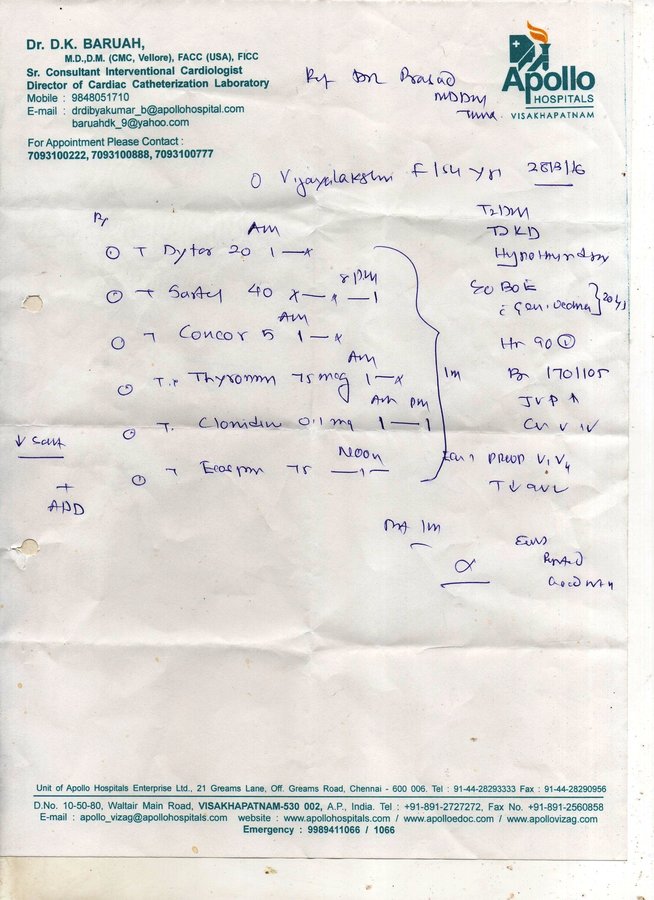 Dr. D.K. BARUAH,
M.D.,D.M. (CMC, Vellore), FACC (USA), FICC
Sr. Consultant Interventional Cardiologist
Director of Cardiac Catheterization Laboratory
Mobile : 9848051710
E-mail : drdibyakumar_b@apollohospital.com
baruahdk_9@yahoo.com
For Appointment Please Contact :
7093100222, 7093100888, 7093100777
Apollo
HOSPITALS
VISAKHAPATNAM
Ref Dr Prasad
MD DM
Vijayalakshmi F/54 yrs 28/3/16
T2DM
Rx
AM
T Dytor 20 1—x
8 PM
T Sartel 40 x—x—1
AM
T Concor 5 1—x
AM
Thyronom 75 mcg 1—x
AM PM
T. Clonidin 0.1 mg 1—1
Noon
T Ecosprin 75 —1—
1m
SOBOE
Hr 90
Br 170/105
JVP ↑
V1 V4
T↓ aVL
↓ Salt
+
ADD
1m
Unit of Apollo Hospitals Enterprise Ltd., 21 Greams Lane, Off. Greams Road, Chennai - 600 006. Tel : 91-44-28293333 Fax : 91-44-28290956
D.No. 10-50-80, Waltair Main Road, VISAKHAPATNAM-530 002, A.P., India. Tel : +91-891-2727272, Fax No. +91-891-2560858
E-mail : apollo_vizag@apollohospitals.com website : www.apollohospitals.com / www.apolloedoc.com / www.apollovizag.com
Emergency : 9989411066 / 1066